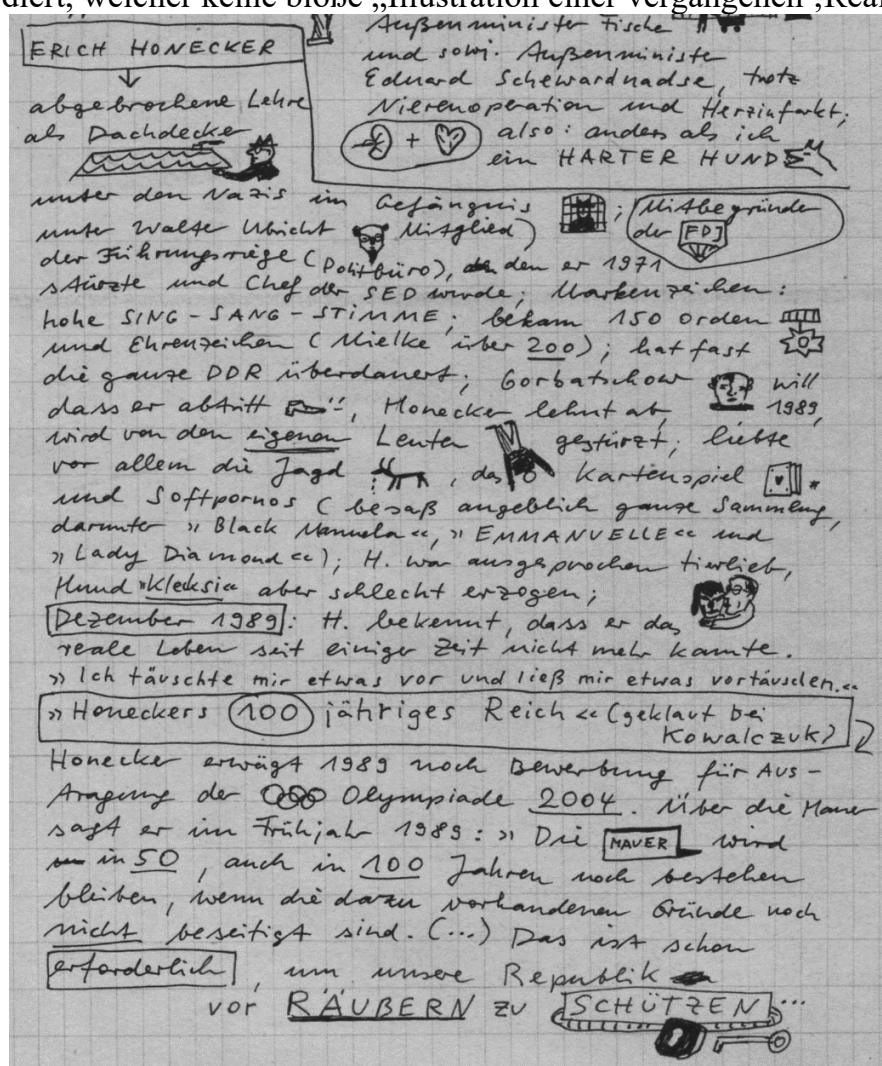 diert, welcher keine bloße „Illustration einer vergangenen ‚Real
ERICH HONECKER
abgebrochene Lehre
als Dachdecker
Außenminister Fische
und sowj. Außenministe
Eduard Schewardnadse, trotz
Nierenoperation und Herzinfarkt;
+ also: anders als ich
ein HARTER HUND
unter den Nazis im Gefängnis ; Mitbegründer
unter Walter Ulbricht Mitglied der FDJ
der Führungsriege (Politbüro), den er 1971
stürzte und Chef der SED wurde; Markenzeichen:
hohe SING-SANG-STIMME; bekam 150 Orden
und Ehrenzeichen (Mielke über 200); hat fast
die ganze DDR überdauert; Gorbatschow will
dass er abtritt, Honecker lehnt ab, 1989,
wird von den eigenen Leuten gestürzt; liebte
vor allem die Jagd, das Kartenspiel
und Softpornos (besaß angeblich ganze Sammlung,
darunter »Black Manuela«, »EMMANUELLE« und
»Lady Diamond«); H. war ausgesprochen tierlieb,
Hund »Klecksi« aber schlecht erzogen;
Dezember 1989: H. bekennt, dass er das
reale Leben seit einiger Zeit nicht mehr kannte.
»Ich täuschte mir etwas vor und ließ mir etwas vortäuschen.«
»Honeckers 100 jähriges Reich« (geklaut bei
Kowalczuk)
Honecker erwägt 1989 noch Bewerbung für Aus-
tragung der Olympiade 2004. Über die Mauer
sagt er im Frühjahr 1989: »Die MAUER wird
in 50, auch in 100 Jahren noch bestehen
bleiben, wenn die dazu vorhandenen Gründe noch
nicht beseitigt sind. (...) Das ist schon
erforderlich, um unsere Republik
vor RÄUBERN zu SCHÜTZEN...